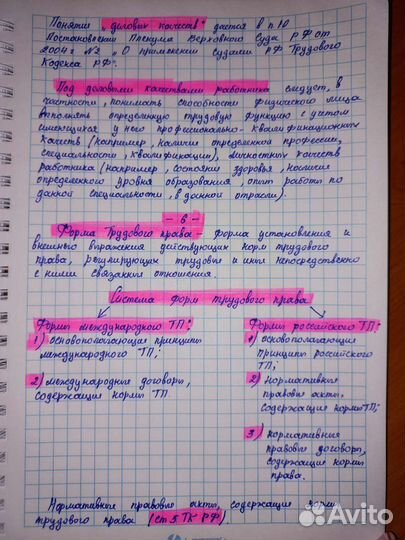 Понятие „деловых качеств" дается в п.10
Постановления Пленума Верховного Суда РФ от
2004г. №2 „О применении судами РФ Трудового
Кодекса РФ".
Под деловыми качествами работника следует, в
частности, понимать способности физического лица
выполнять определенную трудовую функцию с учетом
имеющихся у него профессионально-квалификационных
качеств (например, наличие определенной профессии,
специальности, квалификации), личностных качеств
работника (например, состояние здоровья, наличие
определенного уровня образования, опыт работы по
данной специальности, в данной отрасли).
- 6 -
Форма Трудового права - форма установления и
внешнего выражения действующих норм трудового
права, регулирующих трудовые и иные непосредственно
с ними связанные отношения.
Система форм трудового права
Формы международного ТП:
1) Основополагающие принципы
международного ТП;
2) международные договоры,
содержащие нормы ТП
Формы российского ТП:
1) основополагающие
принципы российского
ТП;
2) Нормативные
правовые акты,
содержащие нормы ТП;
3) Нормативные
правовые договоры,
содержащие нормы
права.
Нормативные правовые акты, содержащие нормы
трудового права (ст.5 ТК РФ).
Avito